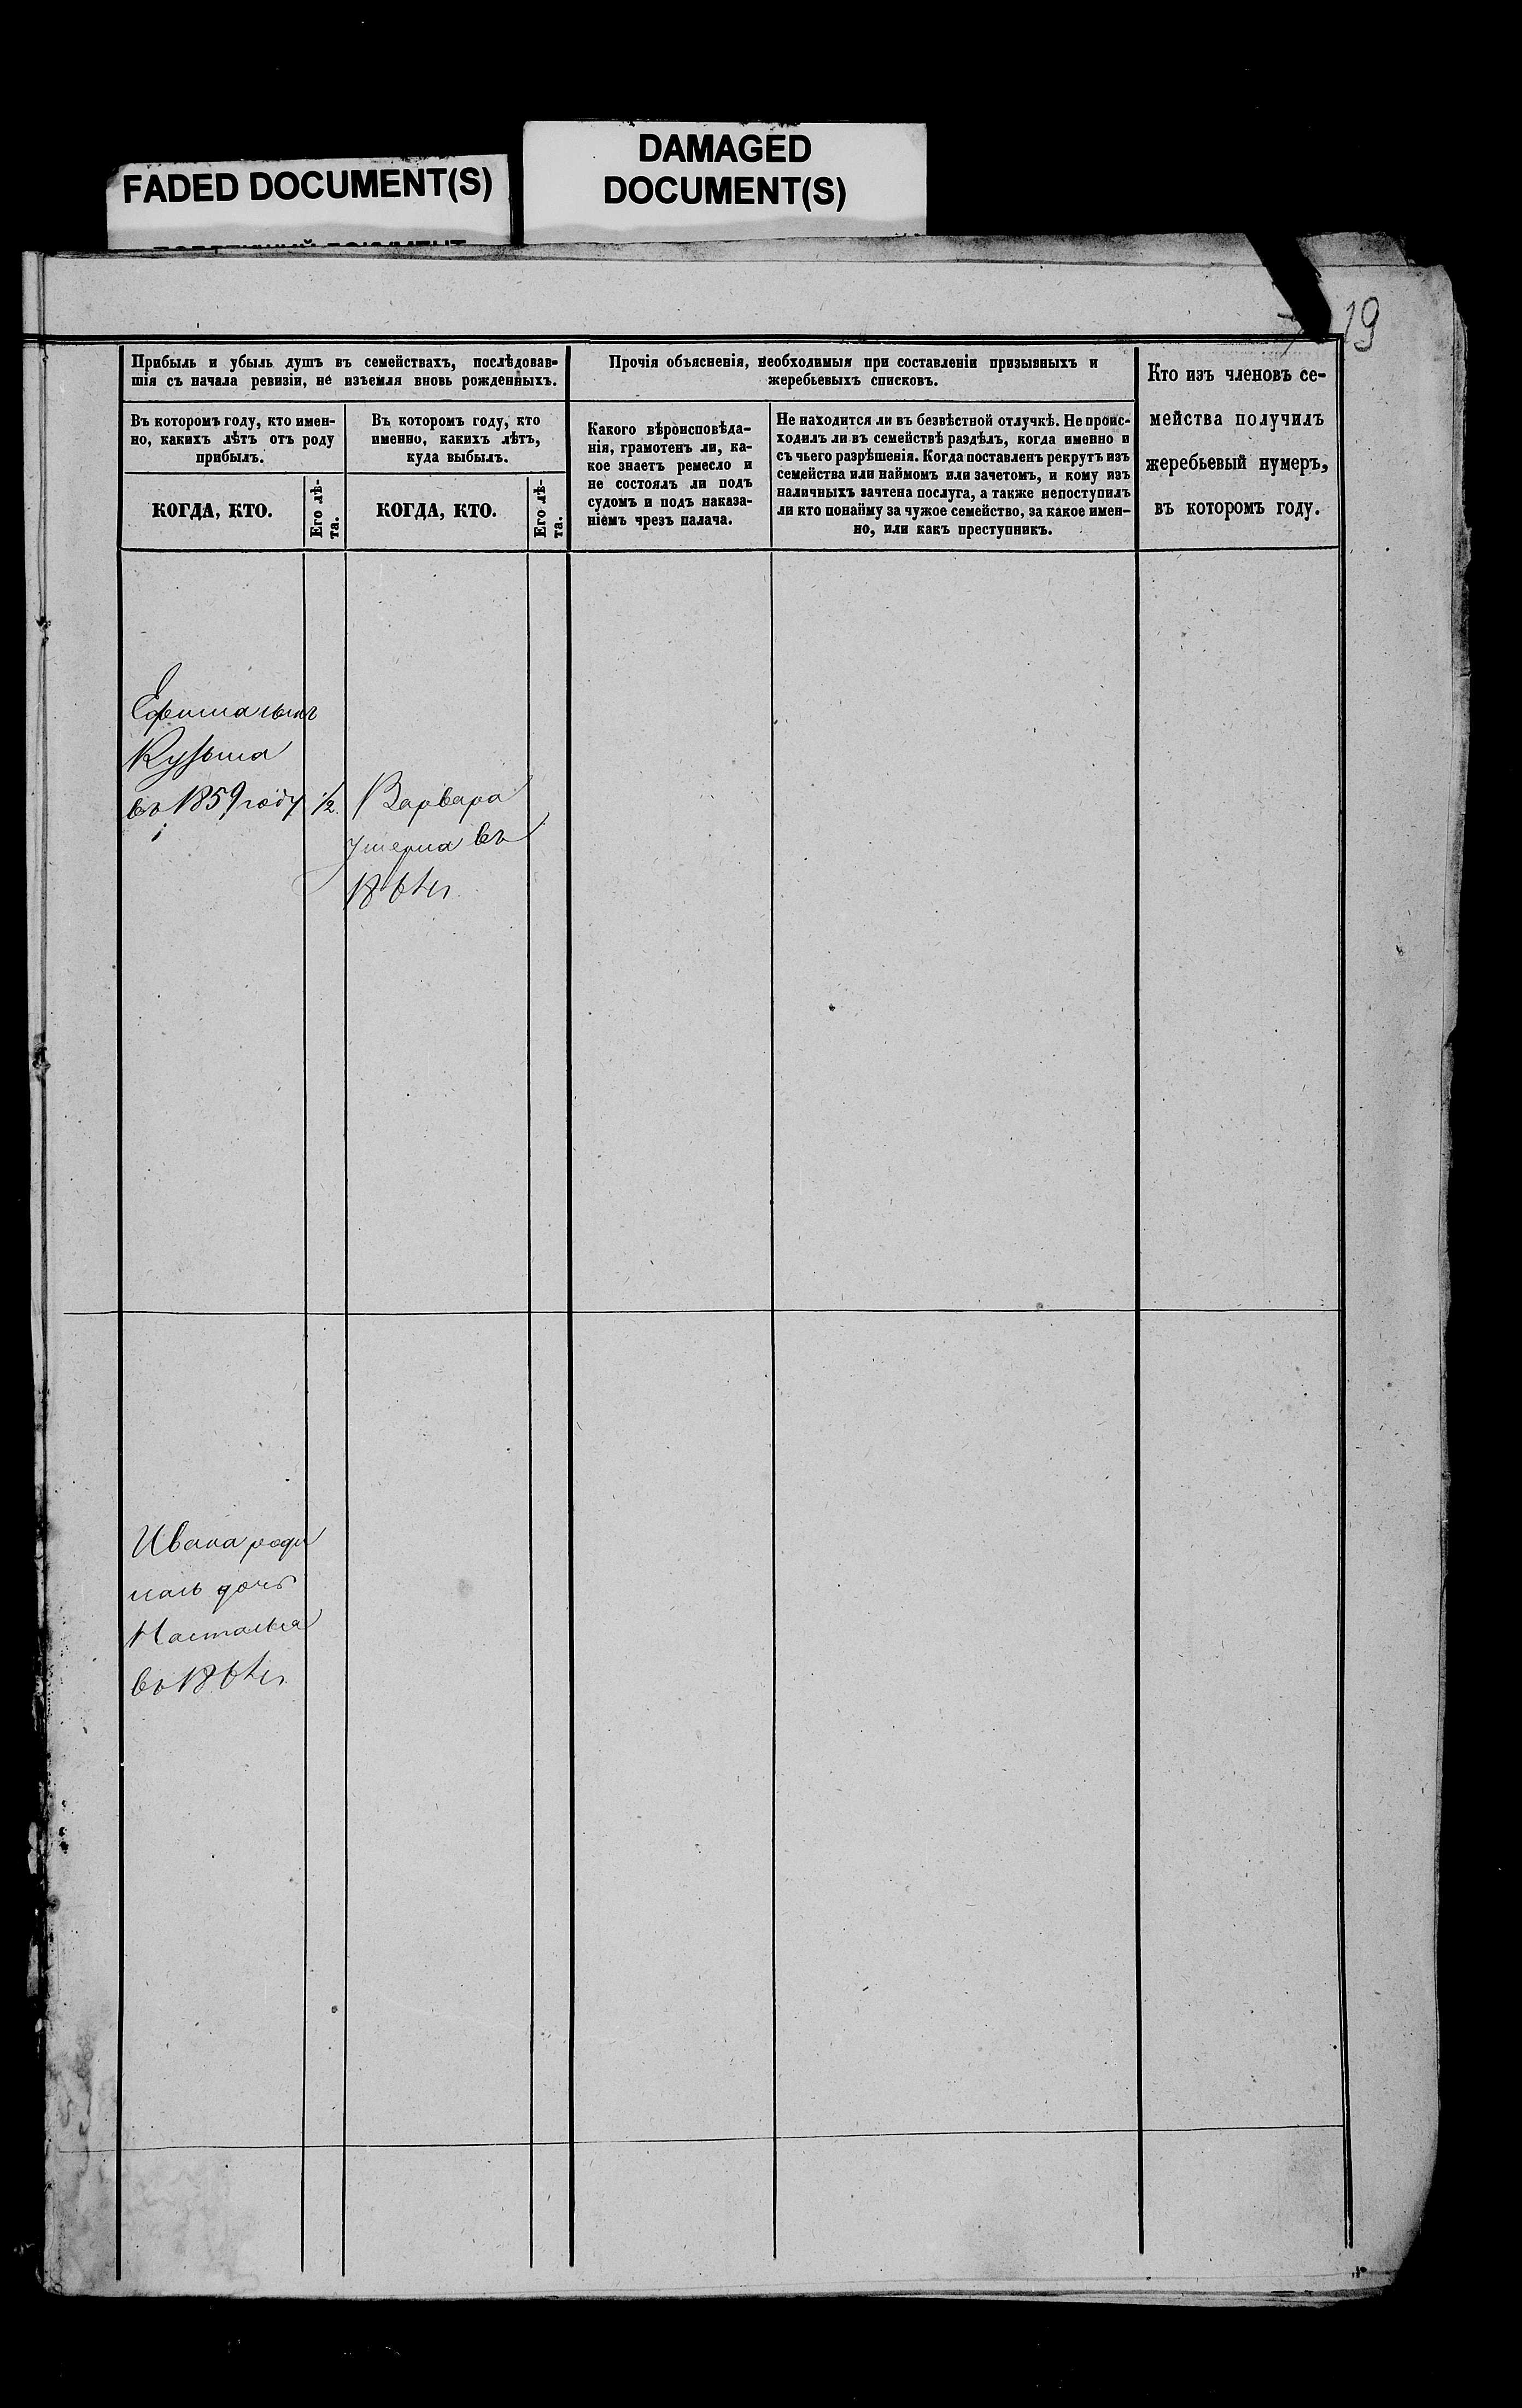 FADED DOCUMENT(S)
DAMAGED
DOCUMENT(S)
19
Прибыль и убыль душъ въ семействахъ, послѣдовав-
шія съ начала ревизіи, не изъемля вновь рожденныхъ.
Въ которомъ году, кто имен-
но, какихъ лѣтъ отъ роду
прибылъ.
КОГДА, КТО.
Его лѣ-
та.
Въ которомъ году, кто
именно, какихъ лѣтъ,
куда выбылъ.
КОГДА, КТО.
Его лѣ-
та.
Прочія объясненія, необходимыя при составленіи призывныхъ и
жеребьевыхъ списковъ.
Какого вѣроисповѣда-
нія, грамотенъ ли, ка-
кое знаетъ ремесло и
не состоялъ ли подъ
судомъ и подъ наказа-
ніемъ чрезъ палача.
Не находится ли въ безвѣстной отлучкѣ. Не проис-
ходилъ ли въ семействѣ раздѣлъ, когда именно и
съ чьего разрѣшенія. Когда поставленъ рекрутъ изъ
семейства или наймомъ или зачетомъ, и кому изъ
наличныхъ зачтена послуга, а также непоступилъ
ли кто понайму за чужое семейство, за какое имен-
но, или какъ преступникъ.
Кто изъ членовъ се-
мейства получилъ
жеребьевый нумеръ,
въ которомъ году.
Кузьма
въ 1859 году 1/2
Варвара
умерла въ
Ивана роди
лась дочь
Настасья